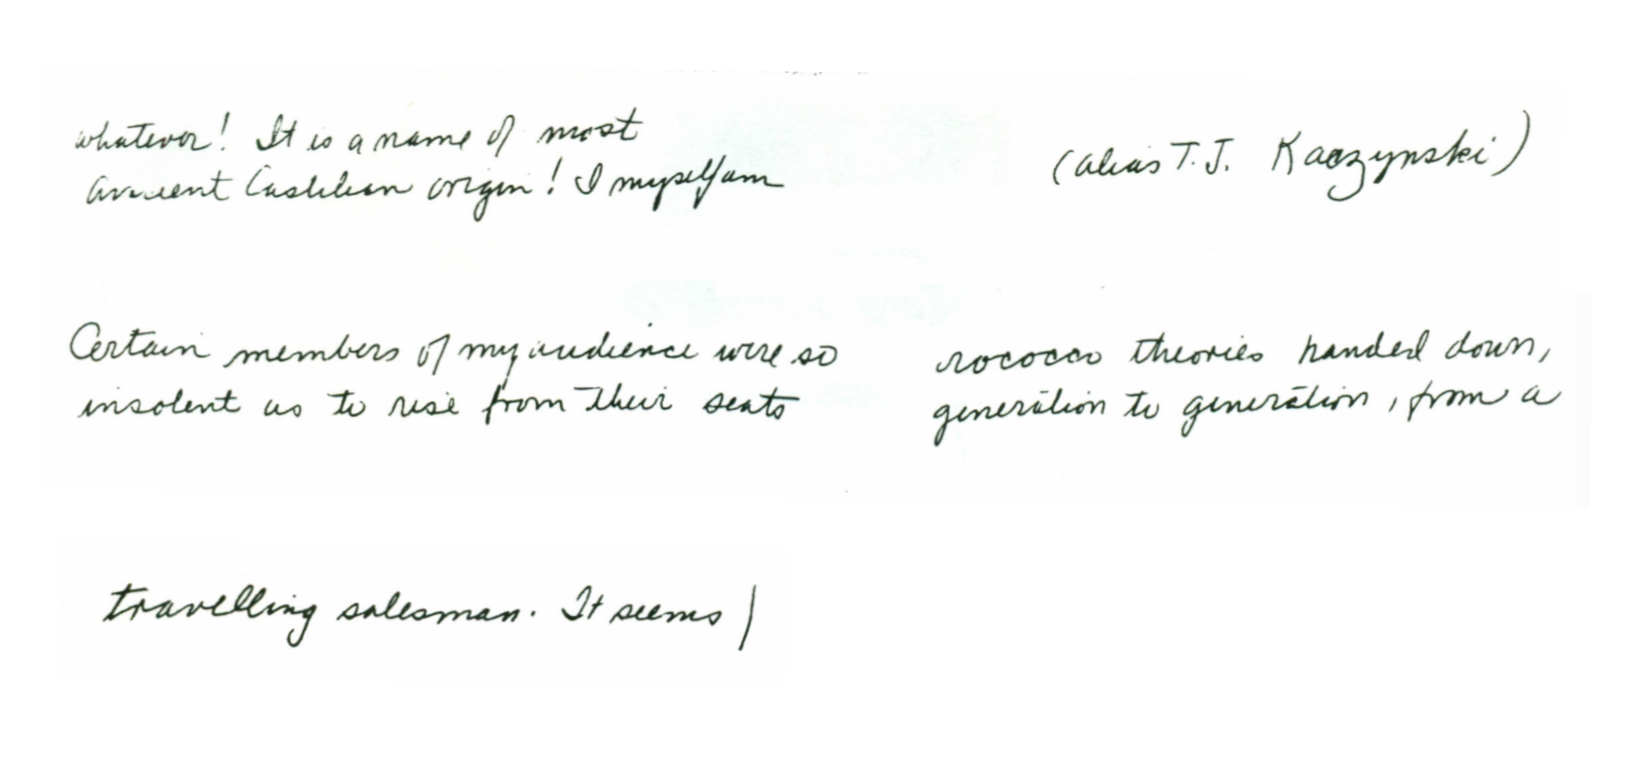 whatever! It is a name of most
ancient Castilian origin! I myself am
(alias T. J. Kaczynski)
Certain members of my audience were so
insolent as to rise from their seats
rococco theories handed down,
generation to generation, from a
travelling salesman. It seems